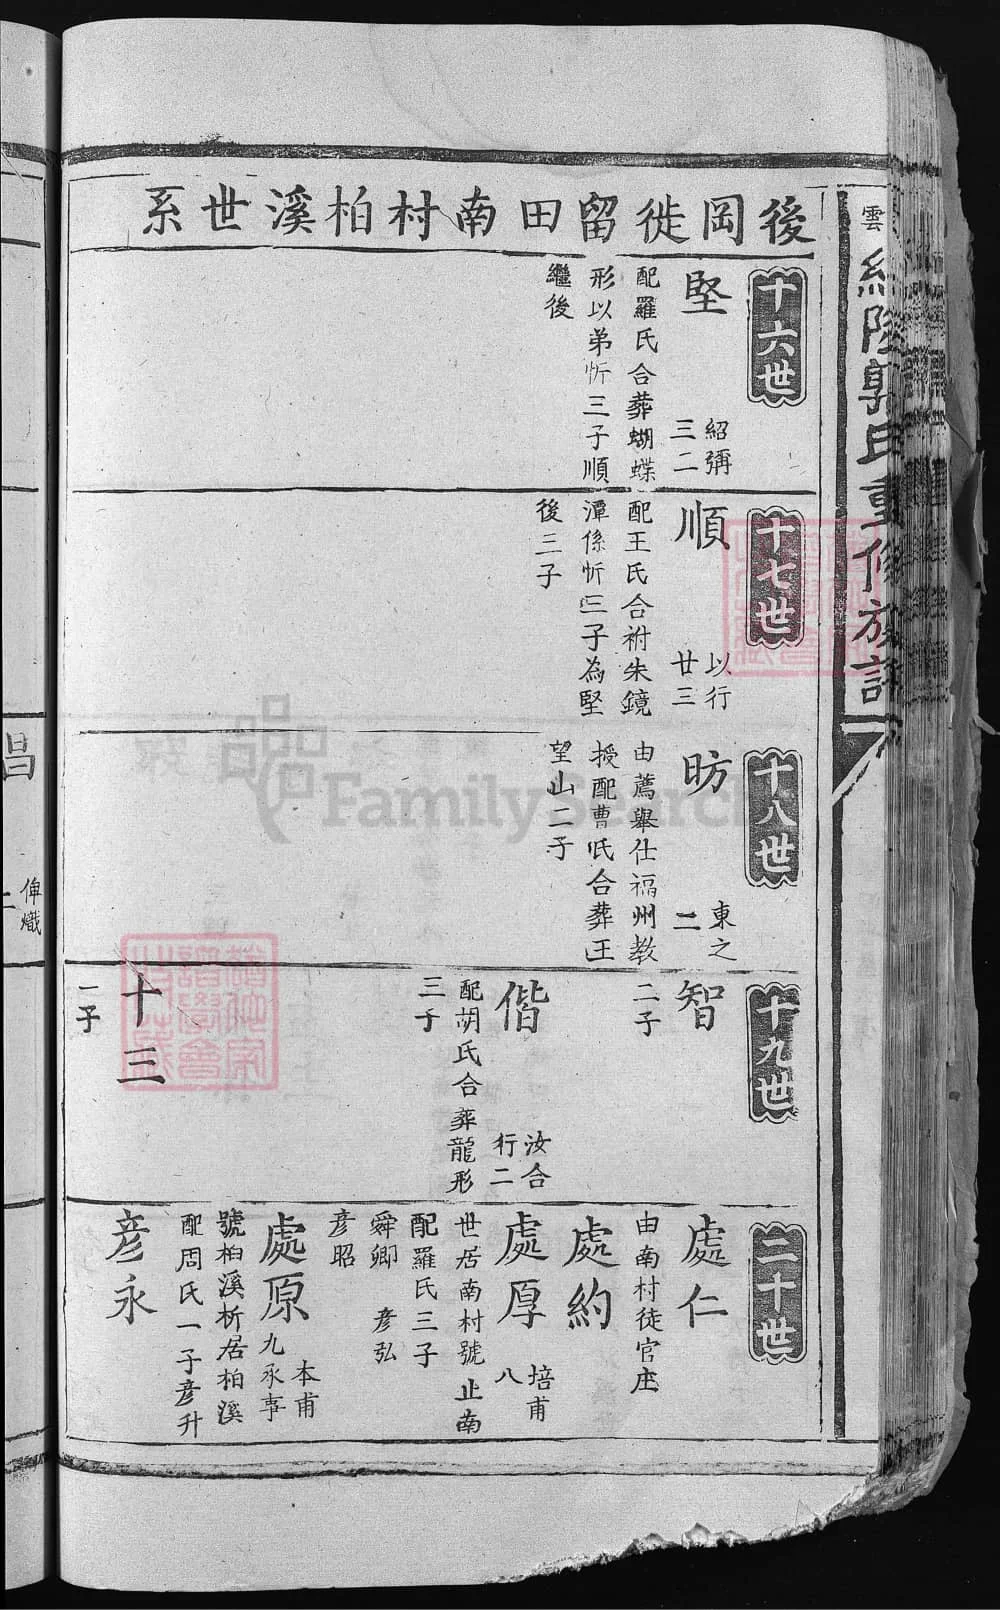 後岡徙留田南村柏溪世系
十六世
堅
紹彌
三二
配羅氏合葬蝴蝶
形以弟忻三子順
繼後
十七世
順
以行
廿三
配王氏合祔朱鏡
潭係忻三子為堅
後三子
十八世
昉
東之
二
由薦舉仕福州教
授配曹氏合葬王
望山二子
十九世
智
二子
偕
汝合
行二
配胡氏合葬龍形
三子
十三
一子
二十世
處仁
由南村徒官庄
處約
處厚
培甫
八
世居南村號止南
配羅氏三子
舜卿 彦弘
彦昭
處原
本甫
九承事
號柏溪析居柏溪
配周氏一子彦升
彦永
雲
郭氏重修族譜
昌
俾熾
FamilySearch